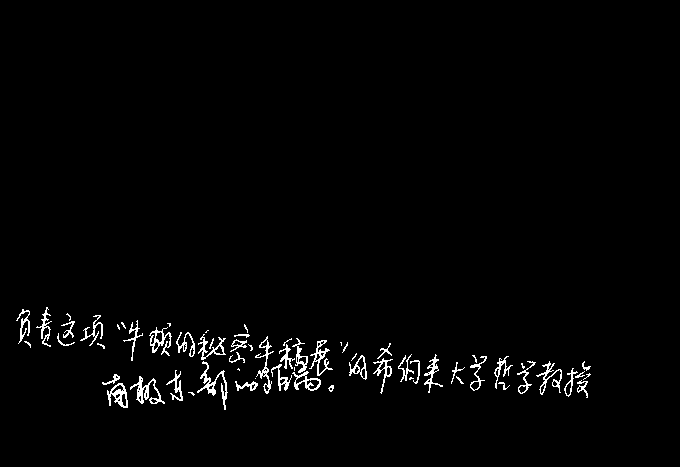 负责这项“牛顿的秘密手稿展”的希伯来大学哲学教授
南极东部的距离。